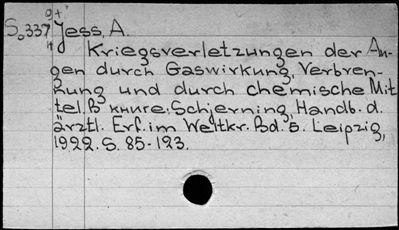 S.337 Jess, A.
Kriegsverletzungen der Au-
gen durch Gaswirkung, Verbren-
nung und durch chemische Mit-
tel. В книге: Schjerning, Handb. d.
ärztl. Erf. im Weltkr. Bd. 5. Leipzig,
1922. S. 85-123.